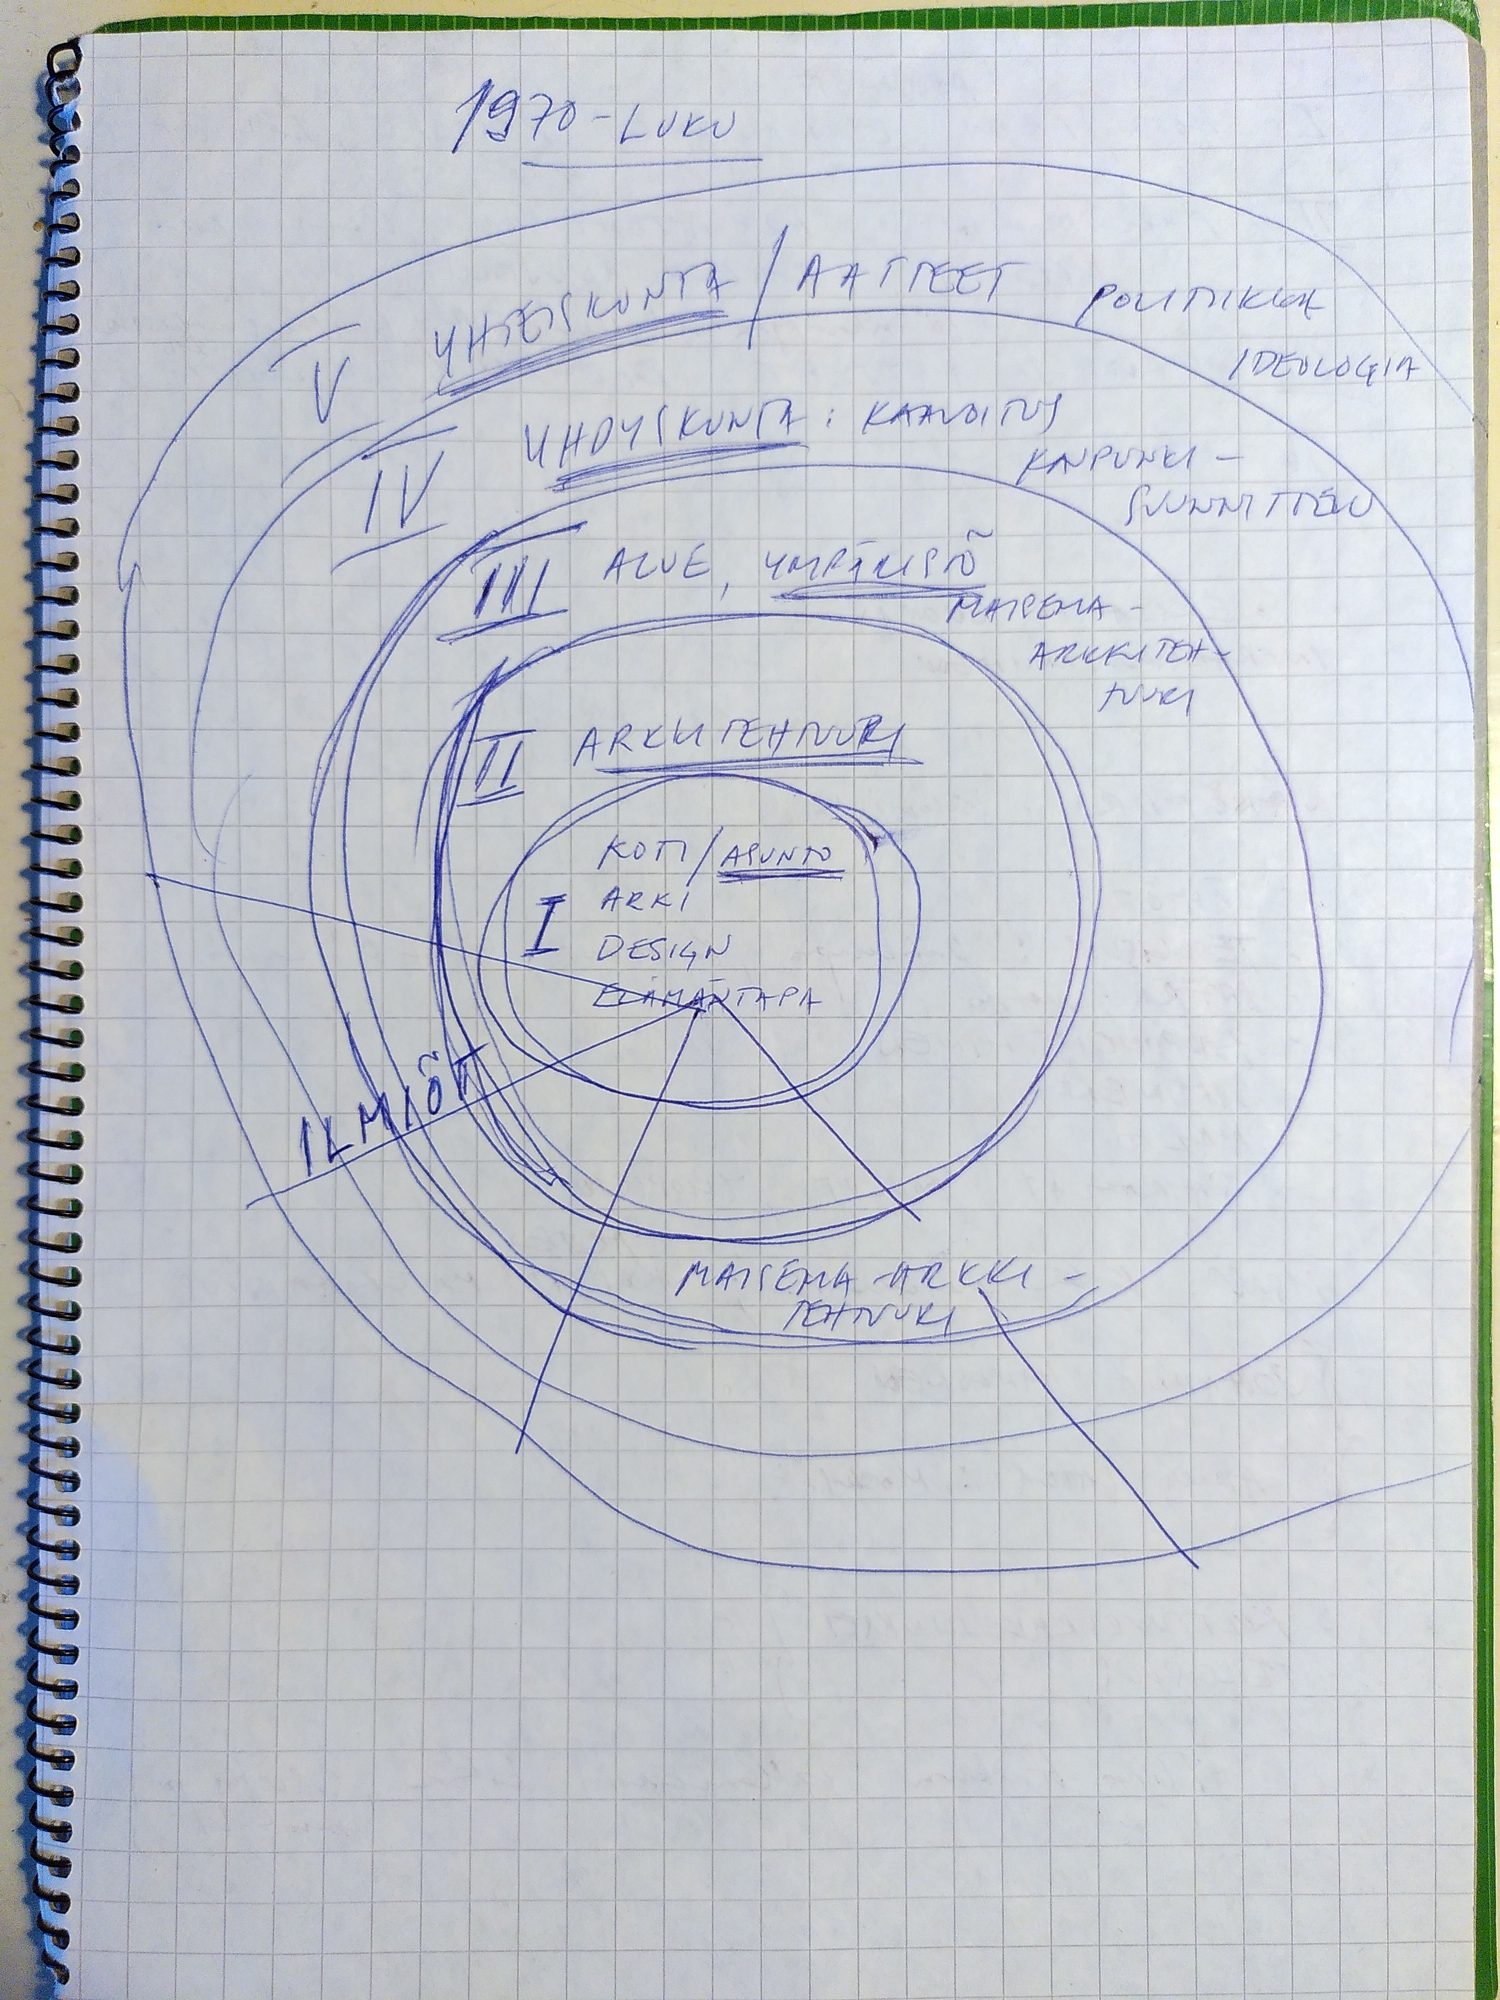 1970-LUKU
V YHTEISKUNTA / AATTEET
POLITIIKKA
IDEOLOGIA
IV YHDYSKUNTA: KAAVOITUS
KAUPUNKI-
SUUNNITTELU
III ALUE, YMPÄRISTÖ
MAISEMA-
ARKKITEH-
TUURI
II ARKKITEHTUURI
KOTI/ASUNTO
I ARKI
DESIGN
ELÄMÄNTAPA
ILMIÖT
MAISEMA-ARKKI-
TEHTUURI